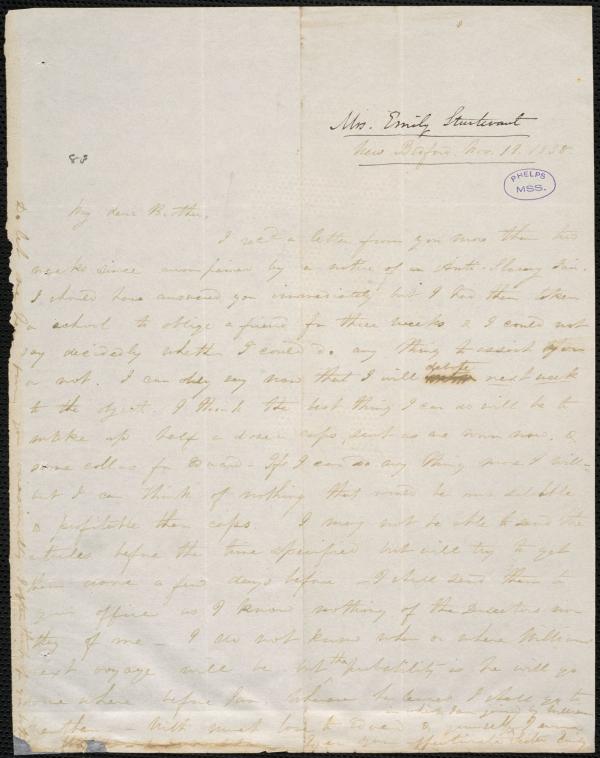 Mrs. Emily Sturtevant
New Bedford. Nov. 19. 1838
83
PHELPS
MSS.
My dear Brother,
I rec'd a letter from you more than two
weeks since accompanied by a notice of an Anti-Slavery Fair.
I should have answered you immediately but I had then taken
a school to oblige a friend for three weeks & I could not
say decidedly whether I could do any thing to assist you
or not. I can only say now that I will devote next week
to the object. I think the best thing I can do will be to
make up half a dozen caps, such as are worn now, &
some collars for
If I can do any thing more I will
but I can think of nothing that would be more saleable
& profitable than caps. I may not be able to send the
articles before the time specified but will try to get
them done a few days before - I shall send them to
your office as I know nothing of the Directors nor
they of me - I do not know when or where William's
next voyage will be but the probability is he will go
some where before long
I shall go to
With much love to
your affectionate sister Emily